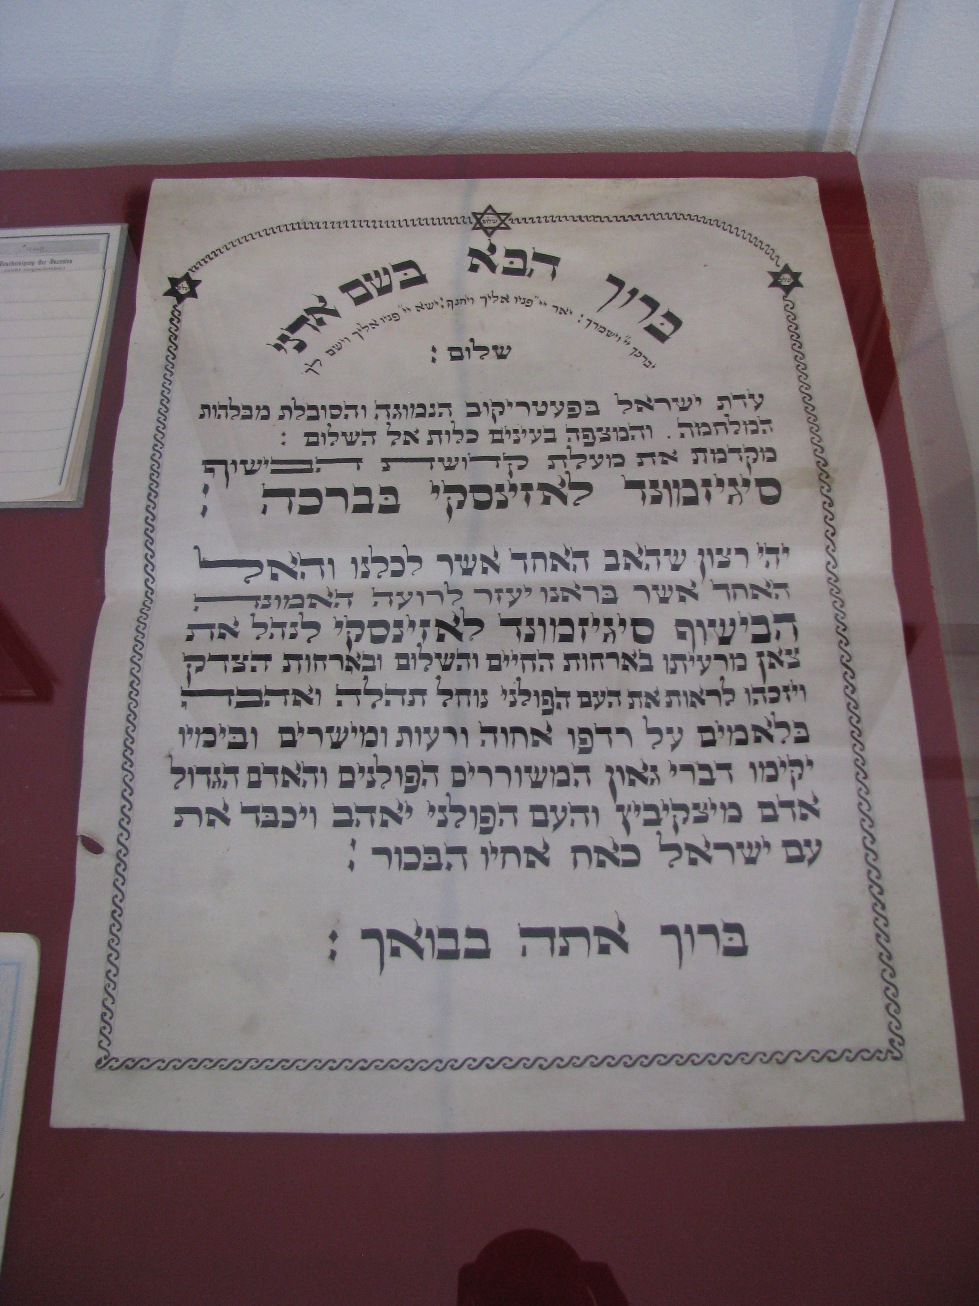 ברוך הבא בשם אדני
יברכך יי וישמרך : יאר יי פניו אליך ויחנך : ישא יי פניו אליך וישם לך
שלום :
עדת ישראל בפעטריקוב הנמוגה והסובלת מבלהות
המלחמה. והמצפה בעינים כלות אל השלום :
מקדמת את מעלת קדושת הבישוף
סיגיזמונד לאזינסקי בברכה :
יהי רצון שהאב האחד אשר לכלנו והאל
האחד אשר בראנו יעזר לרועה האמונה
הבישוף סיגיזמונד לאזינסקי לנהל את
צאן מרעיתו בארחות החיים והשלום ובארחות הצדק
ויזכהו לראות את העם הפולני נוחל תהלה ואהבה
בלאמים על רדפו אחוה ורעות ומישרים ובימיו
יקימו דברי גאון המשוררים הפולנים והאדם הגדול
אדם מיצקיביץ והעם הפולני יאהב ויכבד את
עם ישראל כאח אחיו הבכור :
ברוך אתה בבואך :